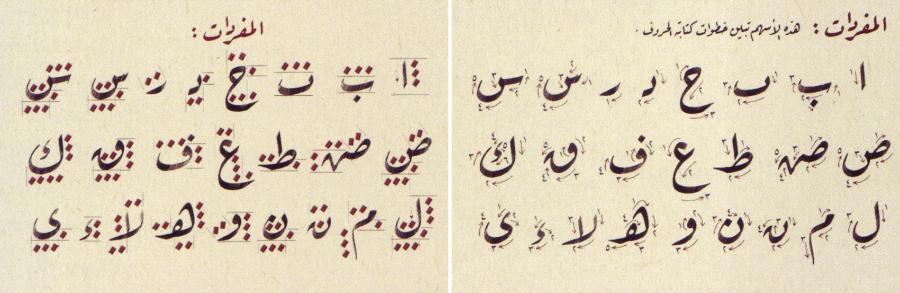 المفردات : هذه الأسهم تبين خطوات كتابة الحروف .
ا ب ب ح د ر س س
ص صـ ط ع ف ق ك
ل م ن ن و هـ لا ء ى
المفردات :
ا ب ب ح د ر س س
ص صـ ط ع ف ق ك
ل م ن ن و هـ لا ء ى